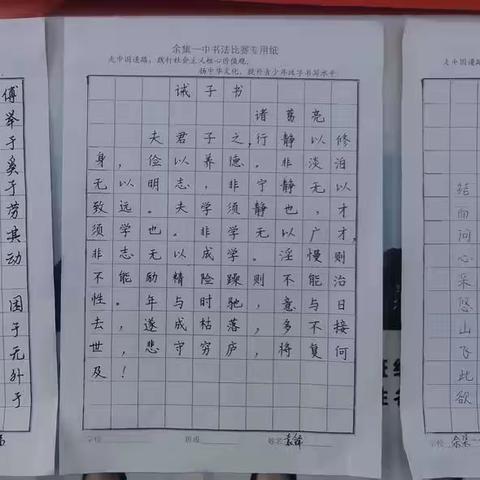 余集一中书法比赛专用纸
走中国道路,践行社会主义核心价值观。
扬中华文化,提升青少年汉字书写水平。
诫子书
诸葛亮
夫君子之,行静以修
身,俭以养德。非淡泊
无以明志,非宁静无以
致远。夫学须静也,才
须学也。非学无以广才,
非志无以成学。淫慢则
不能励精险躁则不能治
性。年与时驰,意与日
去,遂成枯落,多不接
世,悲守穷庐,将复何
及!
学校
班级
姓名
傅
举
于
奚
于
劳
其
动
困
于
于
结
而
问
心
采
悠
山
飞
此
欲
学校